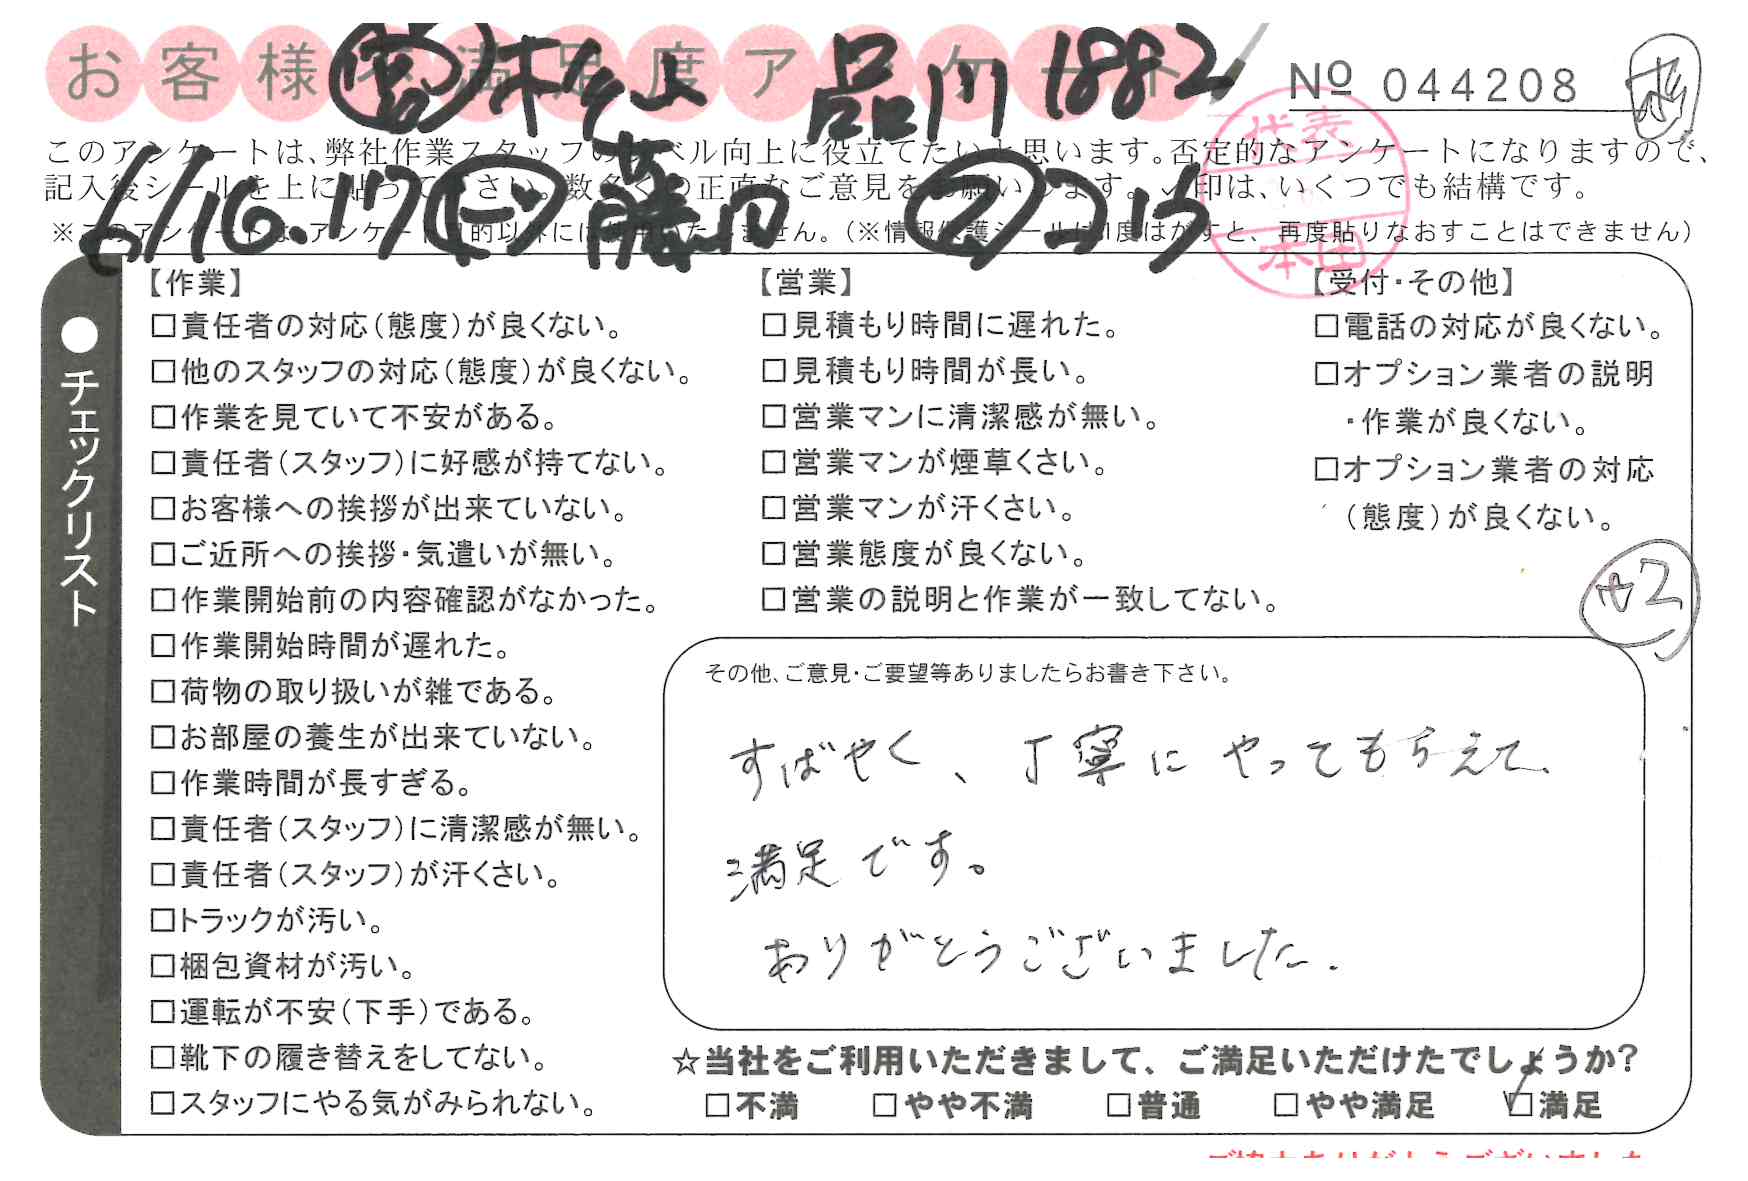 お客様不満足度アンケート
営 村上 品川 1882
№ 044208
代表
本田
このアンケートは、弊社作業スタッフのレベル向上に役立てたいと思います。否定的なアンケートになりますので、
記入後シールを上に貼って下さい。数多くの正直なご意見をお願いします。✓印は、いくつでも結構です。
※このアンケートは、アンケート目的以外には使用いたしません。(※情報保護シールは1度はがすと、再度貼りなおすことはできません)
6/16.17 藤田
●チェックリスト
【作業】
□責任者の対応(態度)が良くない。
□他のスタッフの対応(態度)が良くない。
□作業を見ていて不安がある。
□責任者(スタッフ)に好感が持てない。
□お客様への挨拶が出来ていない。
□ご近所への挨拶・気遣いが無い。
□作業開始前の内容確認がなかった。
□作業開始時間が遅れた。
□荷物の取り扱いが雑である。
□お部屋の養生が出来ていない。
□作業時間が長すぎる。
□責任者(スタッフ)に清潔感が無い。
□責任者(スタッフ)が汗くさい。
□トラックが汚い。
□梱包資材が汚い。
□運転が不安(下手)である。
□靴下の履き替えをしてない。
□スタッフにやる気がみられない。
【営業】
□見積もり時間に遅れた。
□見積もり時間が長い。
□営業マンに清潔感が無い。
□営業マンが煙草くさい。
□営業マンが汗くさい。
□営業態度が良くない。
□営業の説明と作業が一致してない。
【受付・その他】
□電話の対応が良くない。
□オプション業者の説明
・作業が良くない。
□オプション業者の対応
(態度)が良くない。
その他、ご意見・ご要望等ありましたらお書き下さい。
すばやく、丁寧にやってもらえて、
満足です。
ありがとうございました.
☆当社をご利用いただきまして、ご満足いただけたでしょうか?
□不満 □やや不満 □普通 □やや満足 ☑満足
ご協力ありがとうございました